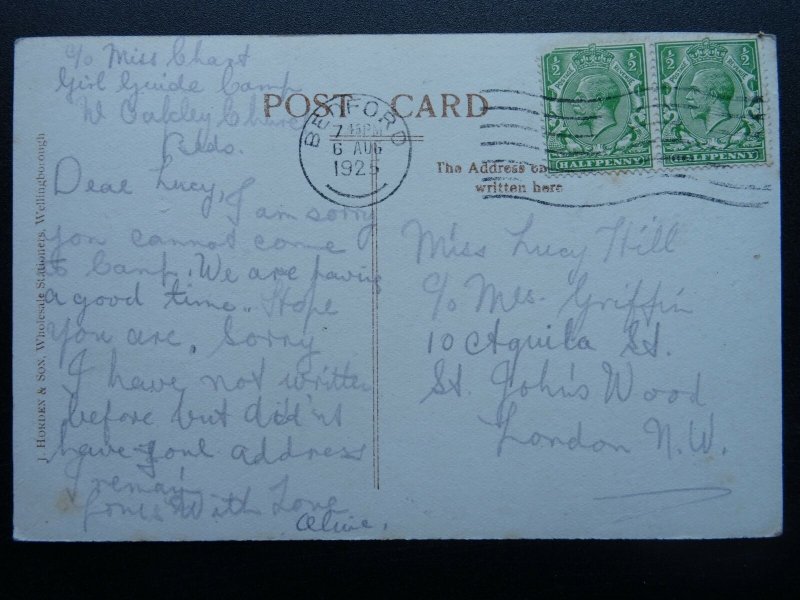 c/o Miss Chart
Girl Guide Camp
W Oakley
Beds.
POST CARD
BEDFORD
7.45PM
6 AUG
1925
½ ½
HALFPENNY
½ ½
HALFPENNY
The Address
written here
Dear Lucy, I am sorry
you cannot come
to Camp. We are having
a good time. Hope
you are. Sorry
I have not written
before but did'nt
have your address
I remain
Yours With Love
Miss Lucy Hill
c/o Mrs. Griffin
10 Aquila St.
St. John's Wood
London N.W.
J. HORDEN & SON, Wholesale Stationers, Wellingborough